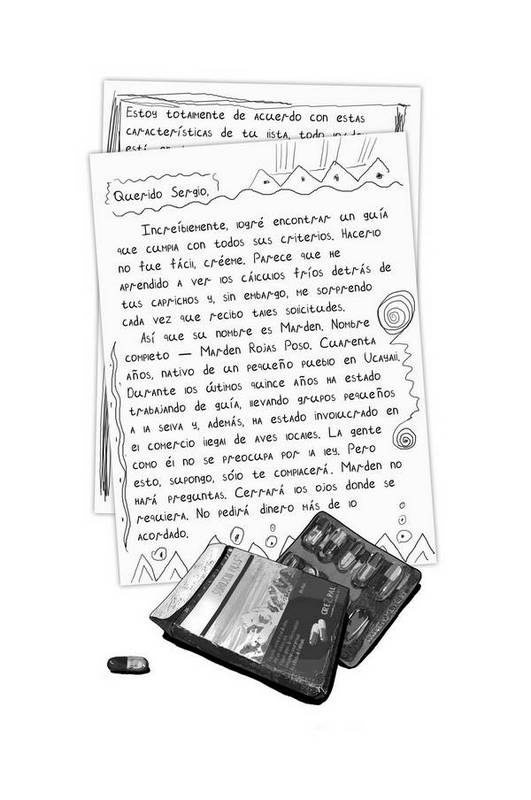 Estoy totalmente de acuerdo con estas
características de tu lista, todo
está
Querido Sergio,
Increíblemente, logré encontrar un guía
que cumpla con todos sus criterios. Hacerlo
no fue fácil, créeme. Parece que he
aprendido a ver los cálculos fríos detrás de
tus caprichos y, sin embargo, me sorprendo
cada vez que recibo tales solicitudes.
Así que su nombre es Marden. Nombre
completo — Marden Rojas Poso. Cuarenta
años, nativo de un pequeño pueblo en Ucayali.
Durante los últimos quince años ha estado
trabajando de guía, llevando grupos pequeños
a la selva y, además, ha estado involucrado en
el comercio ilegal de aves locales. La gente
como él no se preocupa por la ley. Pero
esto, supongo, sólo te complacerá. Marden no
hará preguntas. Cerrará los ojos donde se
requiera. No pedirá dinero más de lo
acordado.